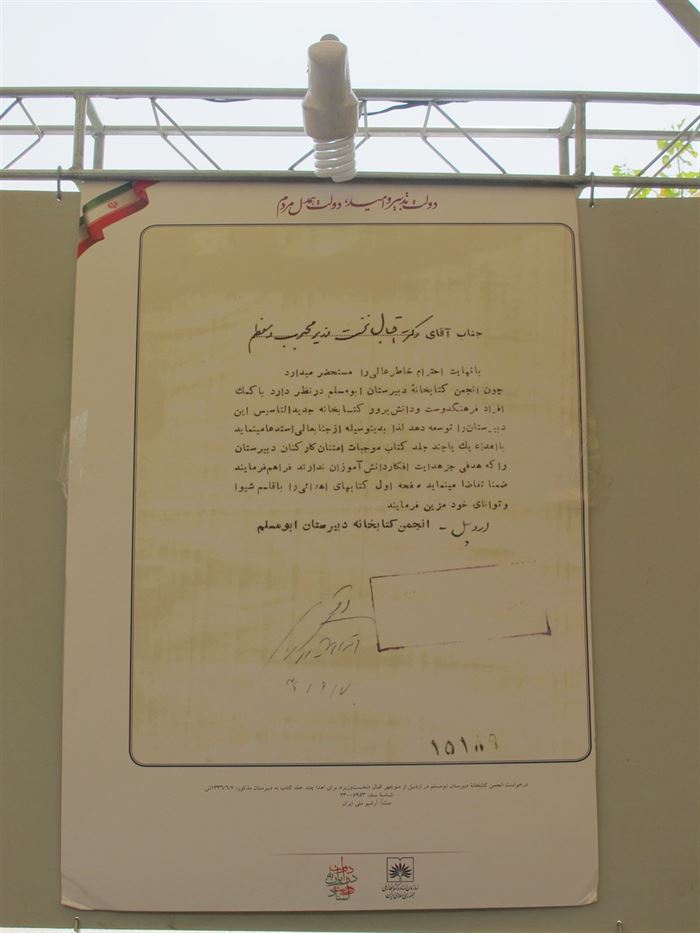 دولت تدبیر و امید، دولت همدل مردم
جناب آقای دکتر اقبال نخست وزیر محبوب و معظم
با نهایت احترام خاطر عالی را مستحضر میدارد
چون انجمن کتابخانهٔ دبیرستان ابومسلم در نظر دارد با کمک
افراد فرهنگدوست و دانش پرور کتابخانه جدید التاسیس این
دبیرستان را توسعه دهد لذا بدینوسیله از جنابعالی استدعا مینماید
با اهداء یک یا چند جلد کتاب موجبات امتنان کارکنان دبیرستان
را که هدفی جز هدایت افکار دانش آموزان ندارند فراهم فرمایند
ضمنا تقاضا مینماید صفحه اول کتابهای اهدائی را با قلم شیوا
و توانای خود مزین فرمایند
اردبیل - انجمن کتابخانه دبیرستان ابومسلم
درخواست انجمن کتابخانهٔ دبیرستان ابومسلم در اردبیل از منوچهر اقبال «نخست‌وزیر» برای اهدا چند جلد کتاب به دبیرستان مذکور؛ ۱۳۳۶/۶/۷ش.
شناسهٔ سند: ۲۳۰۰۵۹۵۳
منشأ: آرشیو ملی ایران
سازمان اسناد و کتابخانه ملی
جمهوری اسلامی ایران